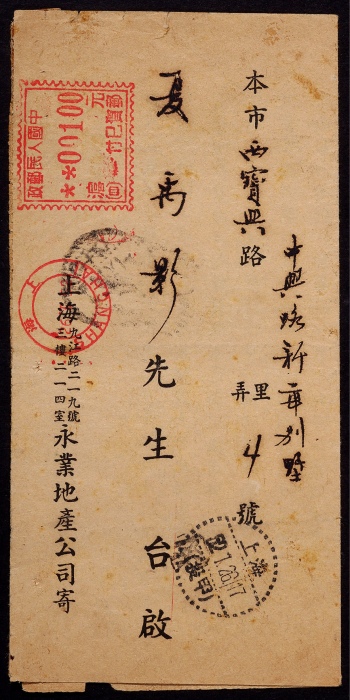 本市西寶興路
中興路新華別墅
弄里4號
夏禹影先生 台啟
上海九江路二一九號
三樓二一四室
永業地產公司寄
中國人民郵政
郵資已付
**00100
元
SHANGHAI
上海
上海
52.1.26.17